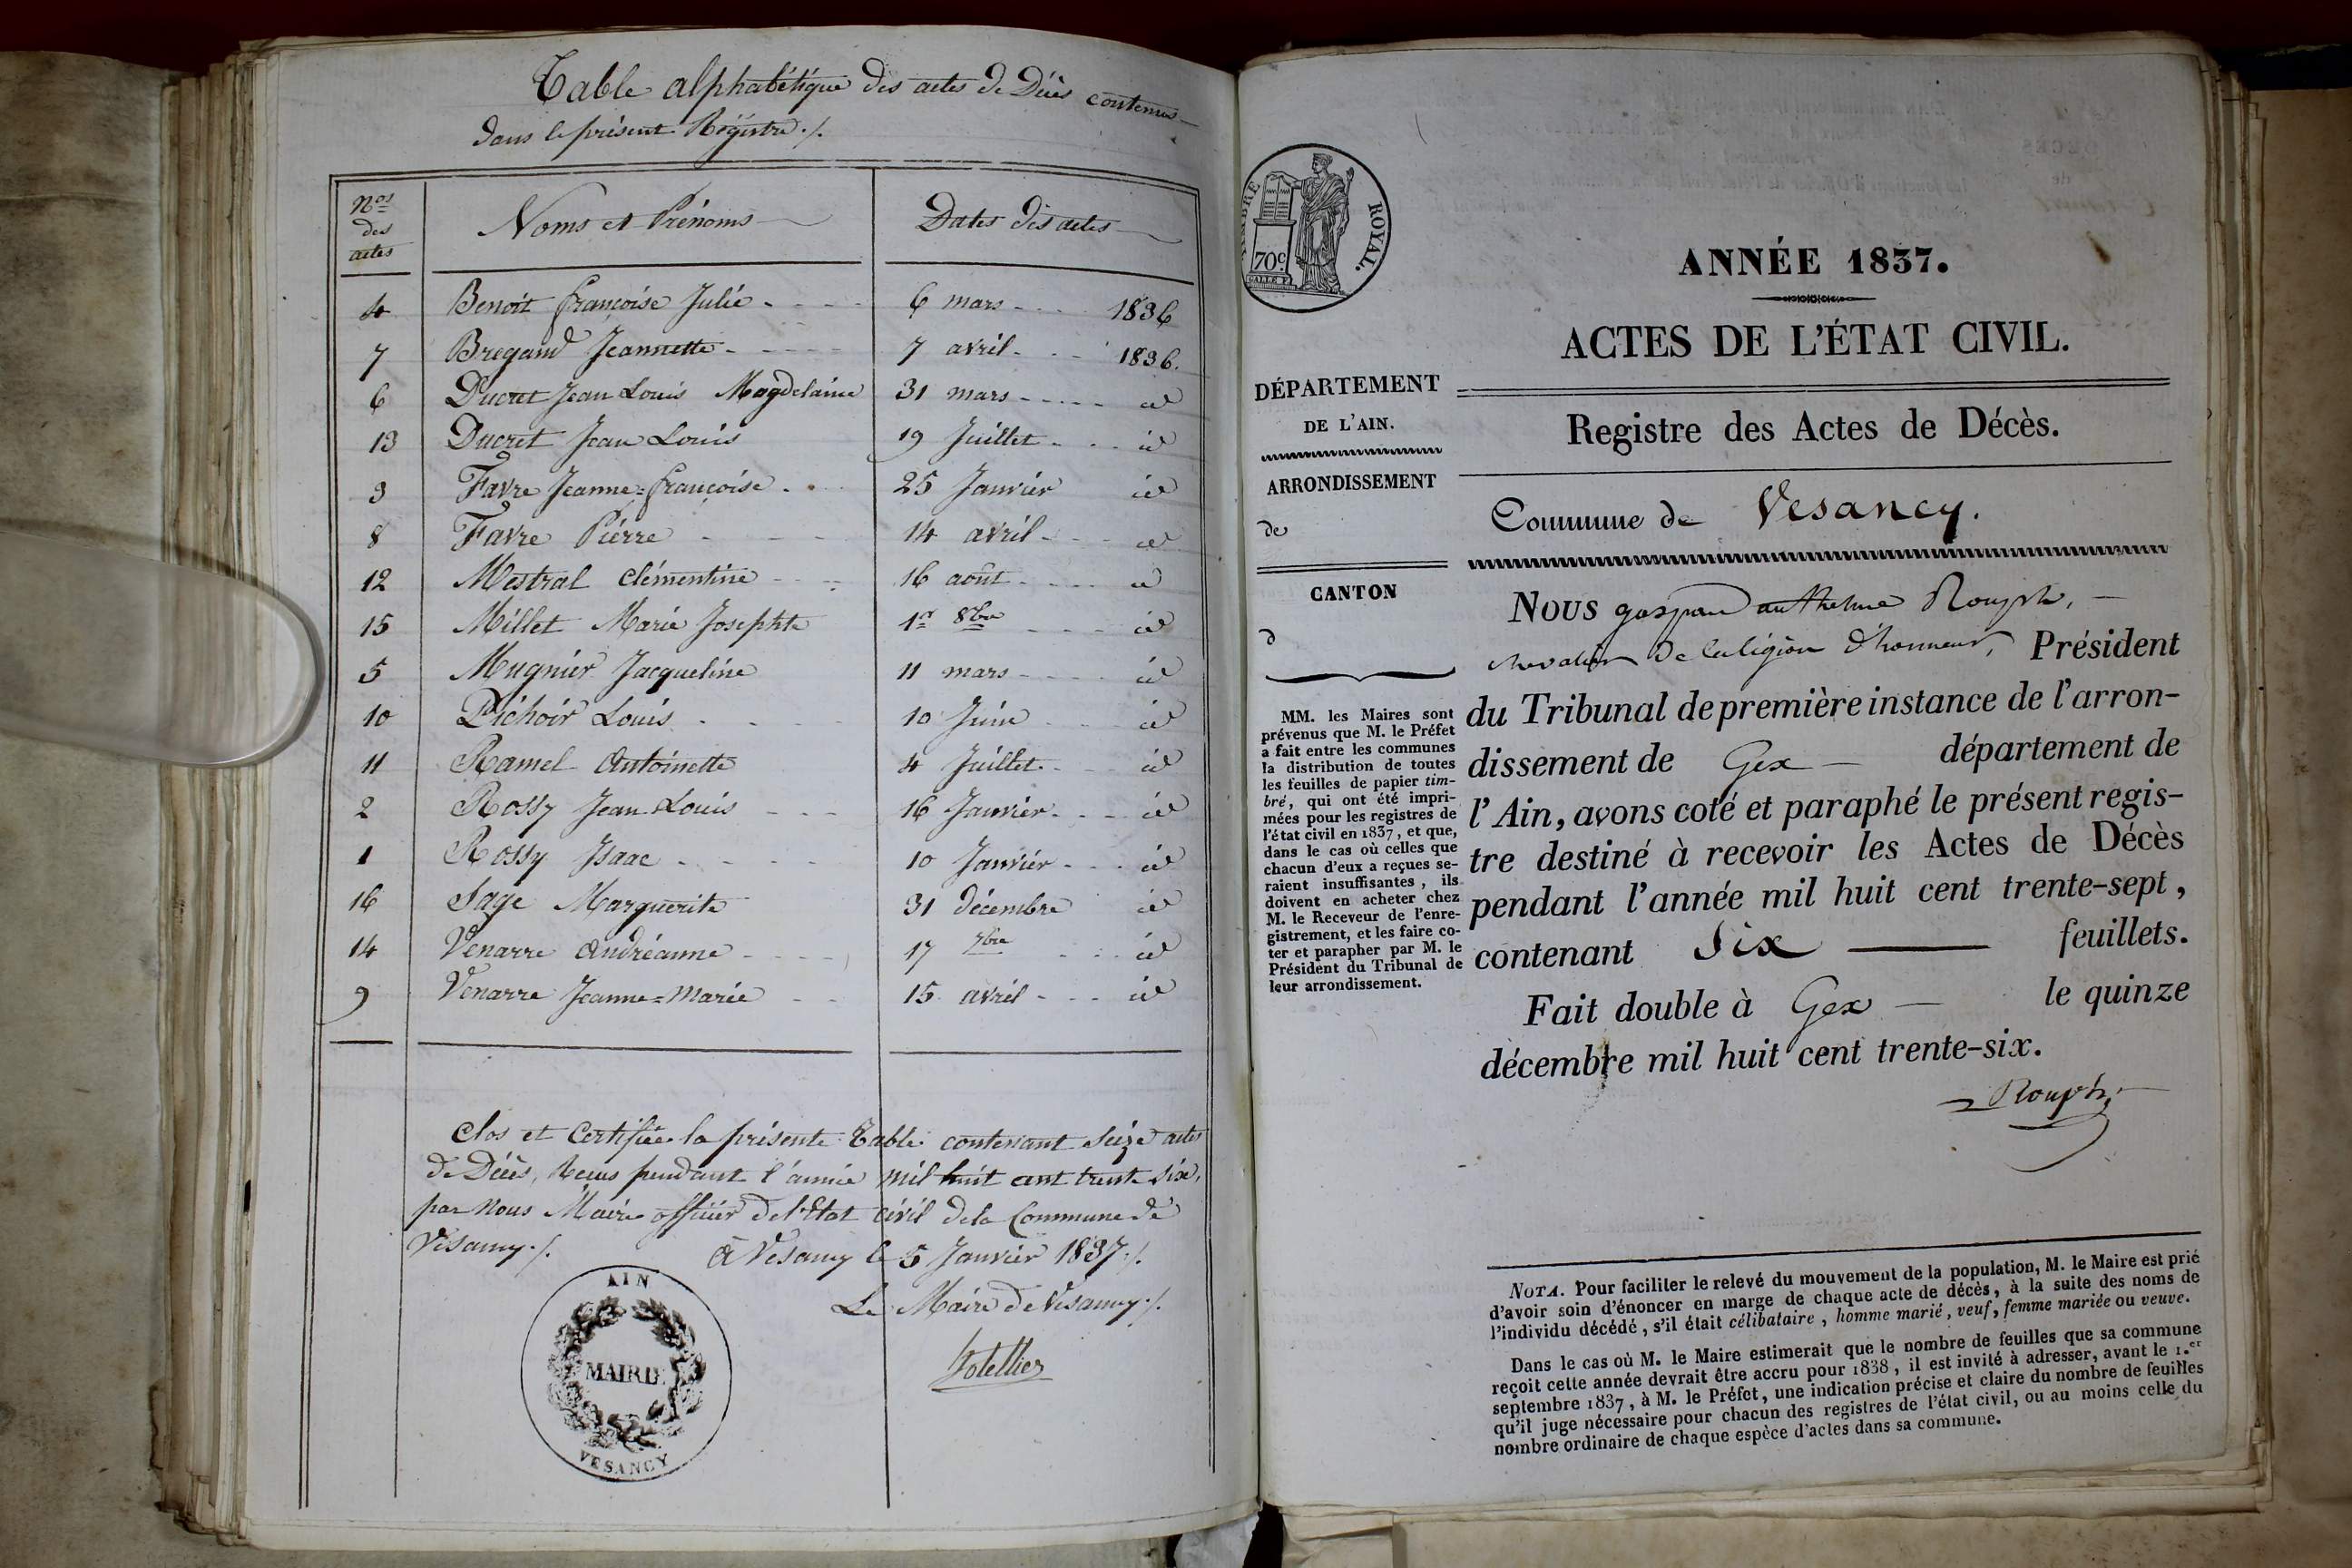 Table alphabétique des actes de Décès contenus
dans le présent Régistre ./.
Nos des actes
Noms et Prénoms
Dates des actes
4 Benoit françoise Julie 6 mars 1836
7 Bregand Jeannette 7 avril 1836.
6 Ducret Jean Louis Magdelaine 31 mars id
13 Ducret Jean Louis 19 Juillet id
3 Favre Jeanne=françoise 25 Janvier id
8 Favre Pierre 14 avril id
12 Mestral Clémentine 16 août id
15 Millet Marie Josephte 1er 8bre id
5 Mugnier Jacqueline 11 mars id
10 Pichoir Louis 10 Juin id
11 Ramel Antoinette 4 Juillet id
2 Rossy Jean Louis 16 Janvier id
1 Rossy Isaac 10 Janvier id
16 Sage Marguerite 31 décembre id
14 Venarre Andréanne 17 7bre id
9 Venarre Jeanne=Marie 15 avril id
Clos et Certifiée la présente Table contenant seize actes
de Décès, Recus pendant l'année mil huit cent trente six,
par Nous Maire officier de l'Etat civil de la Commune de
Vesancy ./.
à Vesancy le 5 Janvier 1837 ./.
Le Maire de Vesancy ./.
AIN
MAIRIE
VESANCY
TIMBRE ROYAL.
70c
ANNÉE 1837.
ACTES DE L'ÉTAT CIVIL.
DÉPARTEMENT
DE L'AIN.
ARRONDISSEMENT
de
CANTON
d
MM. les Maires sont
prévenus que M. le Préfet
a fait entre les communes
la distribution de toutes
les feuilles de papier tim-
bré, qui ont été impri-
mées pour les registres de
l'état civil en 1837, et que,
dans le cas où celles que
chacun d'eux a reçues se-
raient insuffisantes, ils
doivent en acheter chez
M. le Receveur de l'enre-
gistrement, et les faire co-
ter et parapher par M. le
Président du Tribunal de
leur arrondissement.
Registre des Actes de Décès.
Commune de Vesancy.
Nous gaspard anthelme Rouph,
chevalier de la légion d'honneur, Président
du Tribunal de première instance de l'arron-
dissement de Gex département de
l'Ain, avons coté et paraphé le présent regis-
tre destiné à recevoir les Actes de Décès
pendant l'année mil huit cent trente-sept,
contenant Six feuillets.
Fait double à Gex le quinze
décembre mil huit cent trente-six.
Rouph
NOTA. Pour faciliter le relevé du mouvement de la population, M. le Maire est prié
d'avoir soin d'énoncer en marge de chaque acte de décès, à la suite des noms de
l'individu décédé, s'il était célibataire, homme marié, veuf, femme mariée ou veuve.
Dans le cas où M. le Maire estimerait que le nombre de feuilles que sa commune
reçoit cette année devrait être accru pour 1838, il est invité à adresser, avant le 1.er
septembre 1837, à M. le Préfet, une indication précise et claire du nombre de feuilles
qu'il juge nécessaire pour chacun des registres de l'état civil, ou au moins celle du
nombre ordinaire de chaque espèce d'actes dans sa commune.